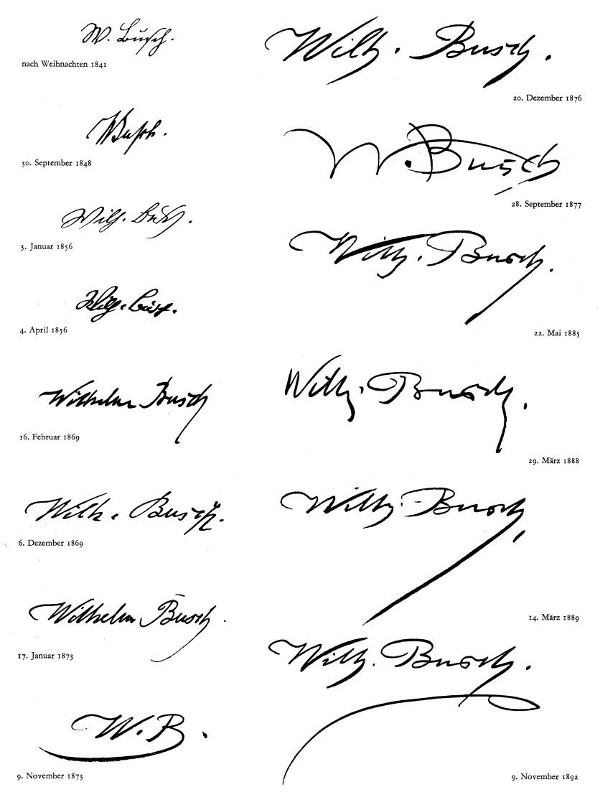 W. Busch.
nach Weihnachten 1841
WBusch.
30. September 1848
Wilh. Busch.
3. Januar 1856
Wilh. Busch.
4. April 1856
Wilhelm Busch
16. Februar 1869
Wilh. Busch.
6. Dezember 1869
Wilhelm Busch.
17. Januar 1873
W. B.
9. November 1873
Wilh. Busch.
20. Dezember 1876
W. Busch
28. September 1877
Wilh. Busch.
22. Mai 1885
Wilh. Busch.
29. März 1888
Wilh. Busch,
14. März 1889
Wilh. Busch.
9. November 1892